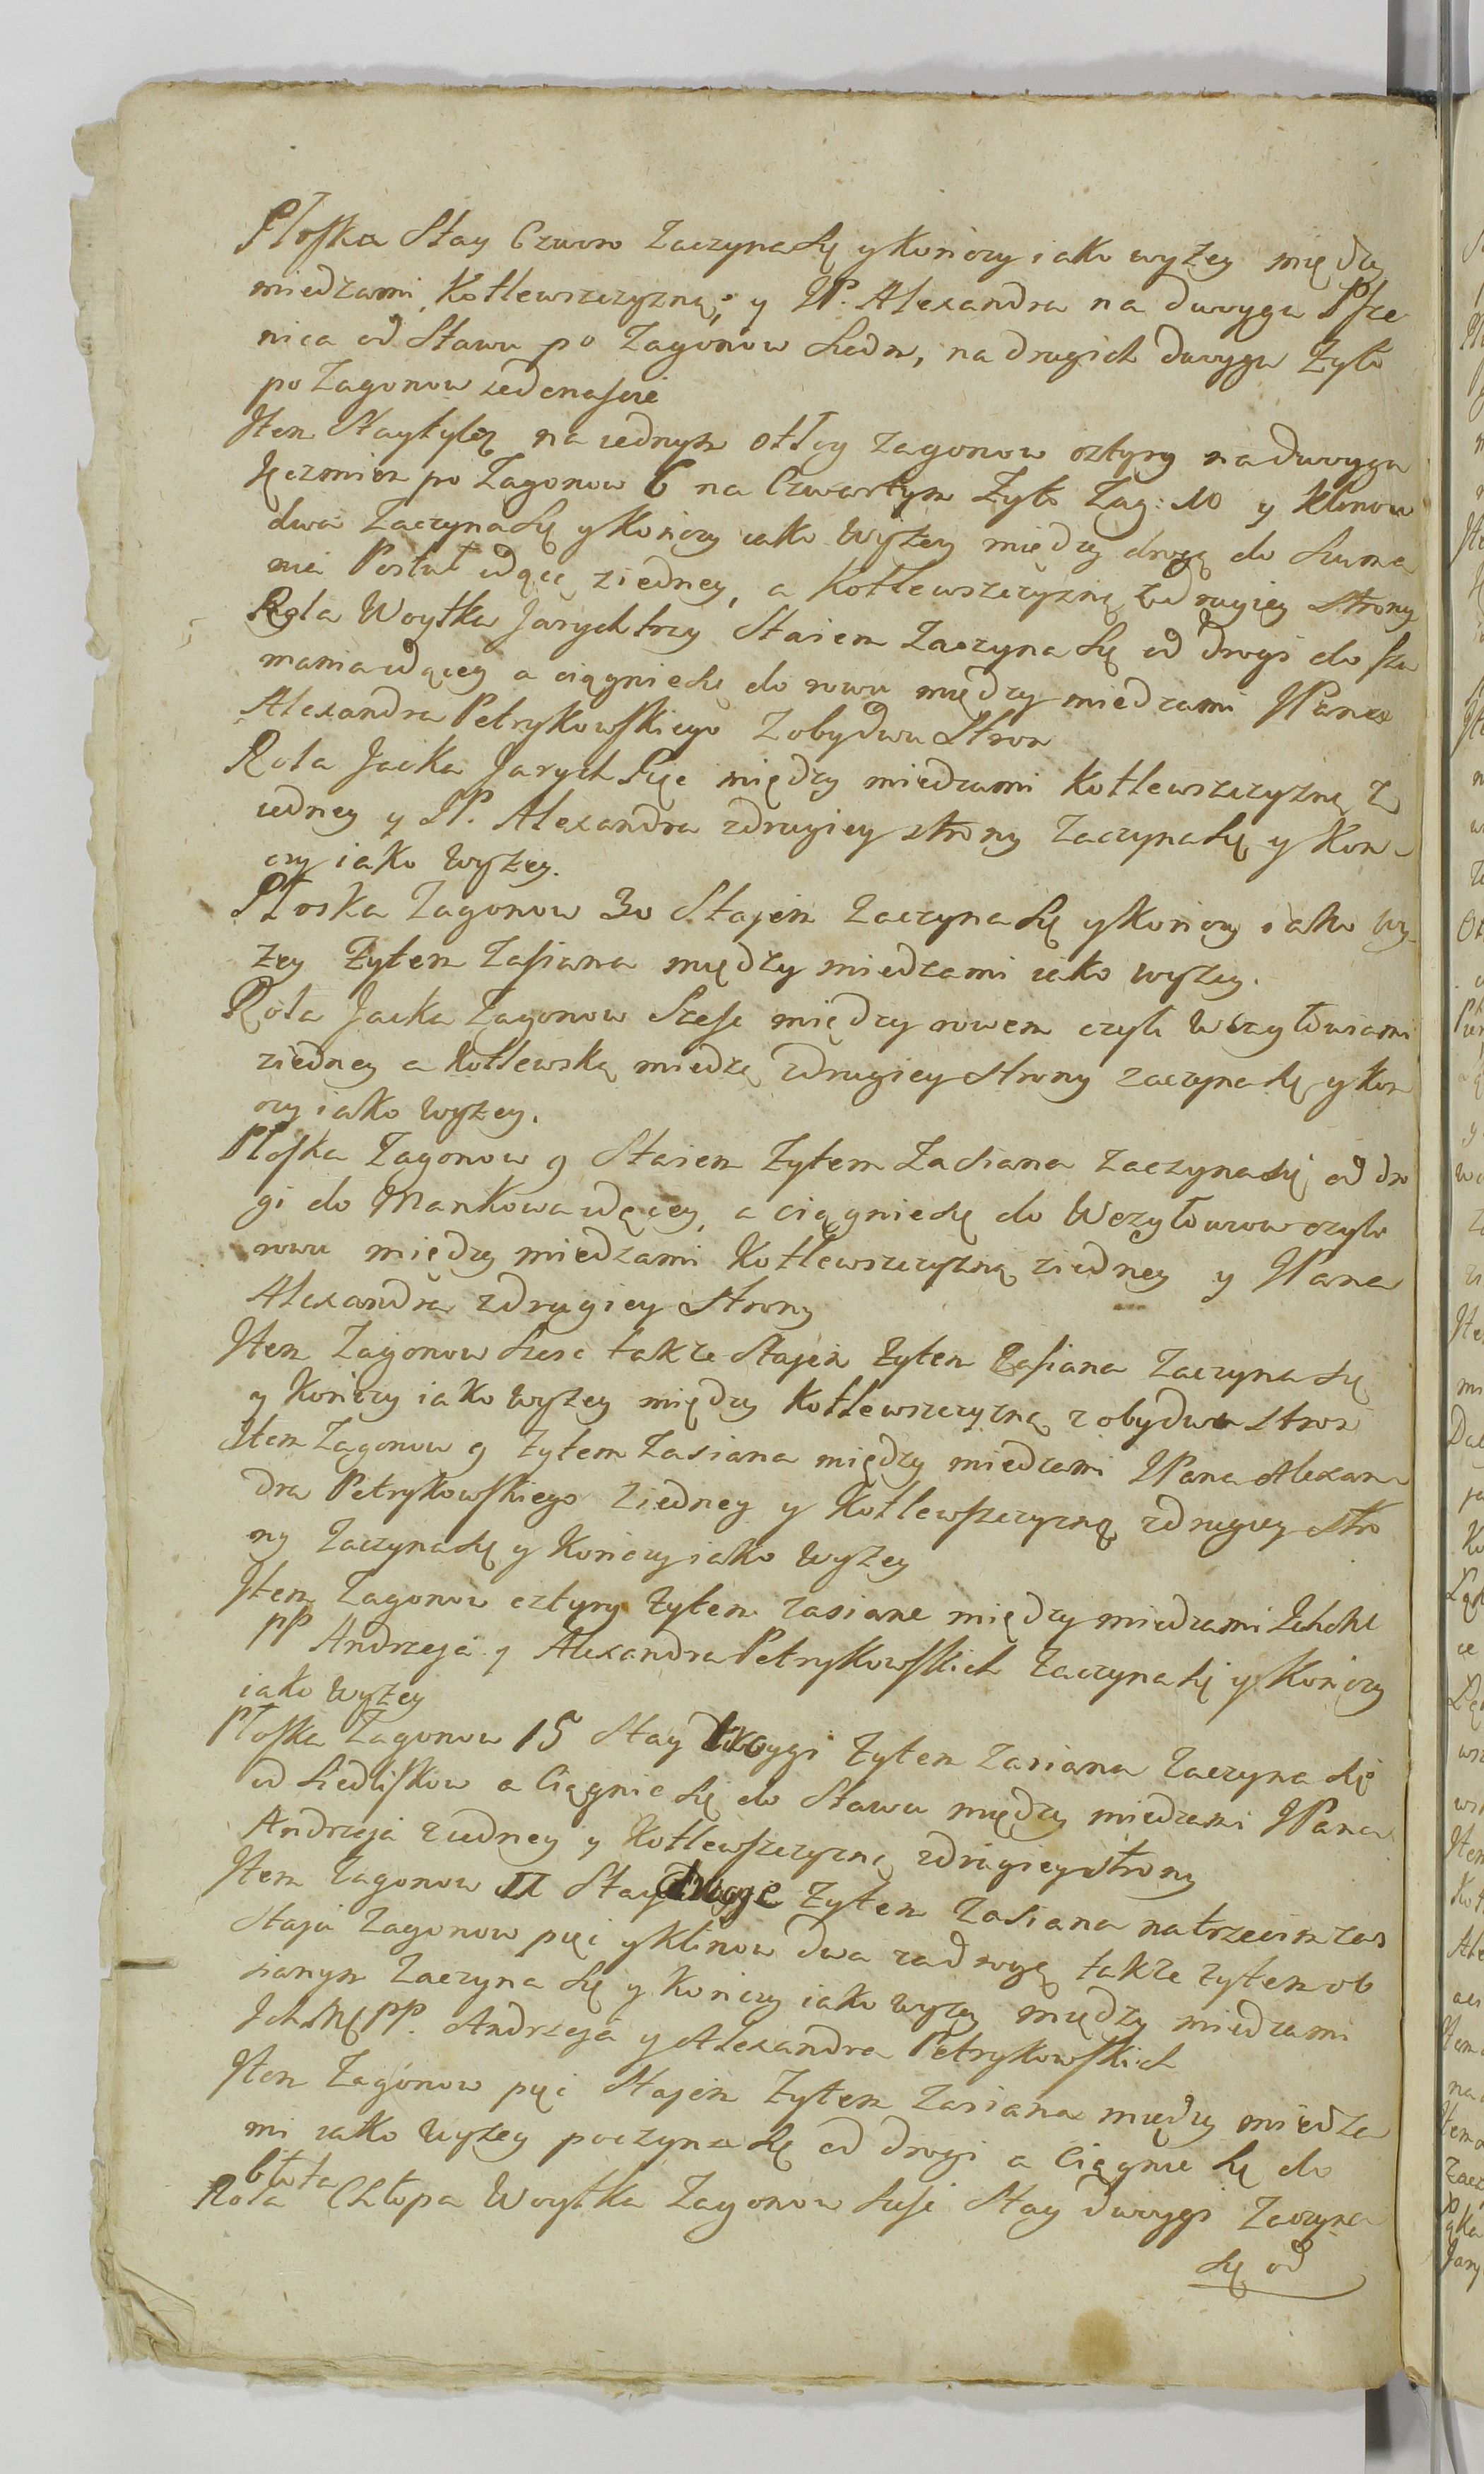 Płoska Stay Czworo Zaczyna Się y Kończy iako wyżey między
miedzami Kotlewszczyzną, y JP. Alexandra na dwoygu Psze
nica od Stawu po Zagonow Siedm, na drugich dwoygu Żyto
po Zagonow iedenascie
Item Stay tylez na iednym odłog zagonow cztyry na dwoygu
Jęczmien po Zagonow 6 na Czwartym Żyto Zag: 10 y klinow
dwa Zaczyna Się y Kończy iako Wyżey między drogą do Suma
nia idącą ziedney, a Kotlewszczyzną zdrugiey Strony
Rola Woytka Jarych trzy Staiem Zaczyna Się od Drogi do Szu
mania idącey a ciągnie Się do rowu między miedzami JPana
Alexandra Petrykowskiego Zobydwu Stron
Rola Jacka Jarych Pięć między miedzami Kotlewszczyzną z
iedney y JP. Alexandra zdrugiey strony Zaczyna Się y Koń-
czy iako Wyżey.
Płoska Zagonow 30 Stajem Zaczyna Się y Kończy iako Wy-
żey Żytem Zasiana między miedzami iako wyżey.
Rola Jacka Zagonow Szesc między rowem czyli Wezyłowiami
ziedney a Kotlewską miedzą zdrugiey strony zaczyna Się y Koń
czy iako Wyżey.
Płoska Zagonow 9 Staiem Żytem Zasiana Zaczyna Się od dro
gi do Mankowa idącey, a ciągnie Się do Wezyłowow czyli
rowu między miedzami Kotlewszczyzną ziedney y JPana
Alexandra zdrugiey Strony
Item Zagonow Szesc także Stajem Żytem Zasiana Zaczyna Się
y Kończy iako Wyżey między Kotlewszczyzną z obydwu stron
Item Zagonow 9 Żytem Zasiana między miedzami JPana Alexan-
dra Petrykowskiego ziedney y Kotlewszczyzną zdrugiey Stro
ny Zaczyna Się y Kończy iako Wyżey
Item Zagonow cztyry żytem zasiane między miedzami
PP Andrzeja y Alexandra Petrykowskich Zaczyna Się y Kończy
iako Wyżey
Płoska Zagonow 15 Stay Żytem Zasiana Zaczyna Się
od Siedlisków a Ciągnie Się do Stawu między miedzami JPana
Andrzeja ziedney y Kotlewszczyzną zdrugiey Strony
Item Zagonow Stay Żytem Zasiana na trzecim zas
Staja Zagonow pięć y Klinow Dwa zadrogą także żytem ob
sianym Zaczyna Się y Kończy iako wyżey między miedzami
PP. Andrzeja y Alexandra Petrykowskich
Item Zagonow pięć Stajem Żytem Zasiana między miedza
mi iako Wyżey poczyna Się od Drogi a Ciągnie Się do
błota
Rola Chłopa Woytka Zagonow Szesc Stay dwoygi Zaczyna
Się od